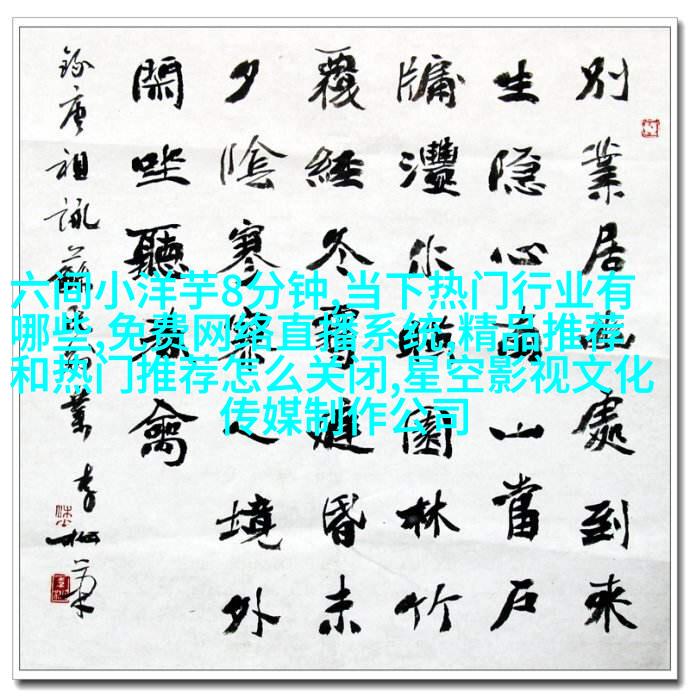 別業居幽處到來
生隐心南山當户
牖灃水映園林竹
覆經冬雪庭昏未
夕陰寥寥人境外
閑坐聽春禽
錄唐祖詠蘇氏別業
六间小洋芋8分钟,当下热门行业有
哪些,免费网络直播系统,精品推荐
和热门推荐怎么关闭,星空影视文化
传媒制作公司